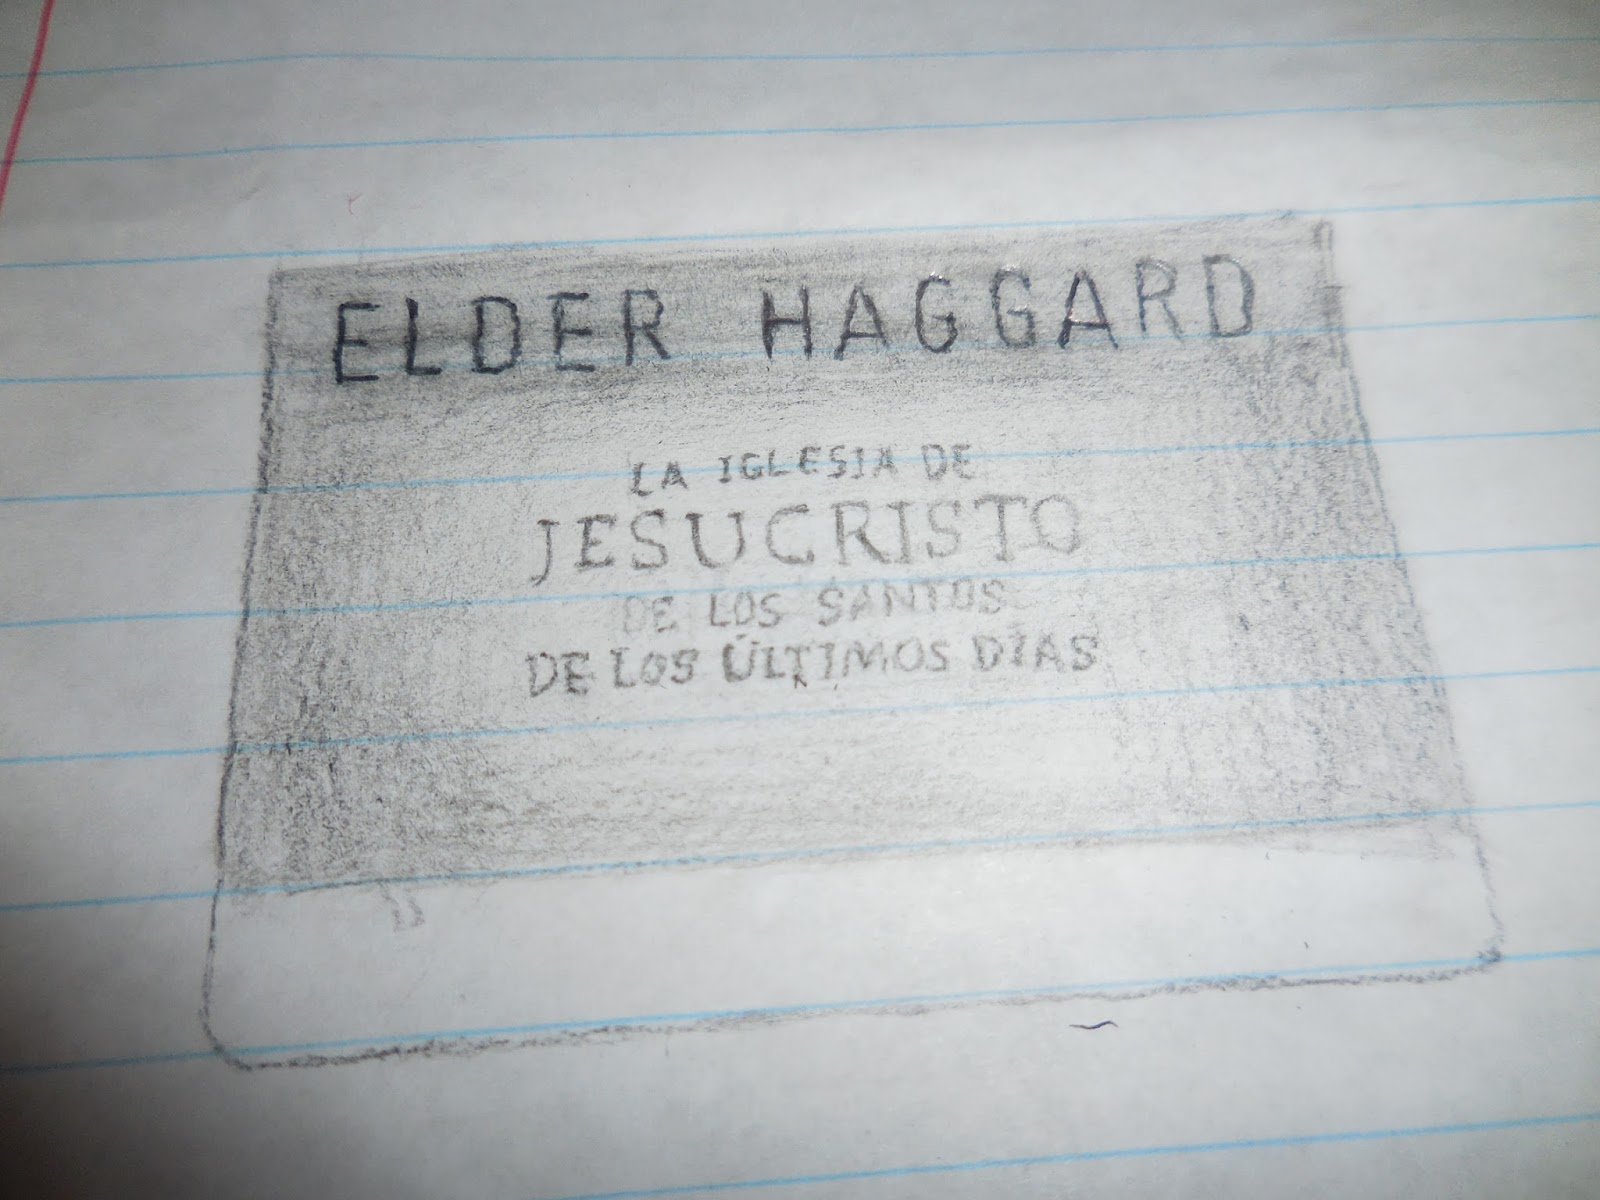 ELDER HAGGARD
LA IGLESIA DE
JESUCRISTO
DE LOS SANTOS
DE LOS ÚLTIMOS DÍAS